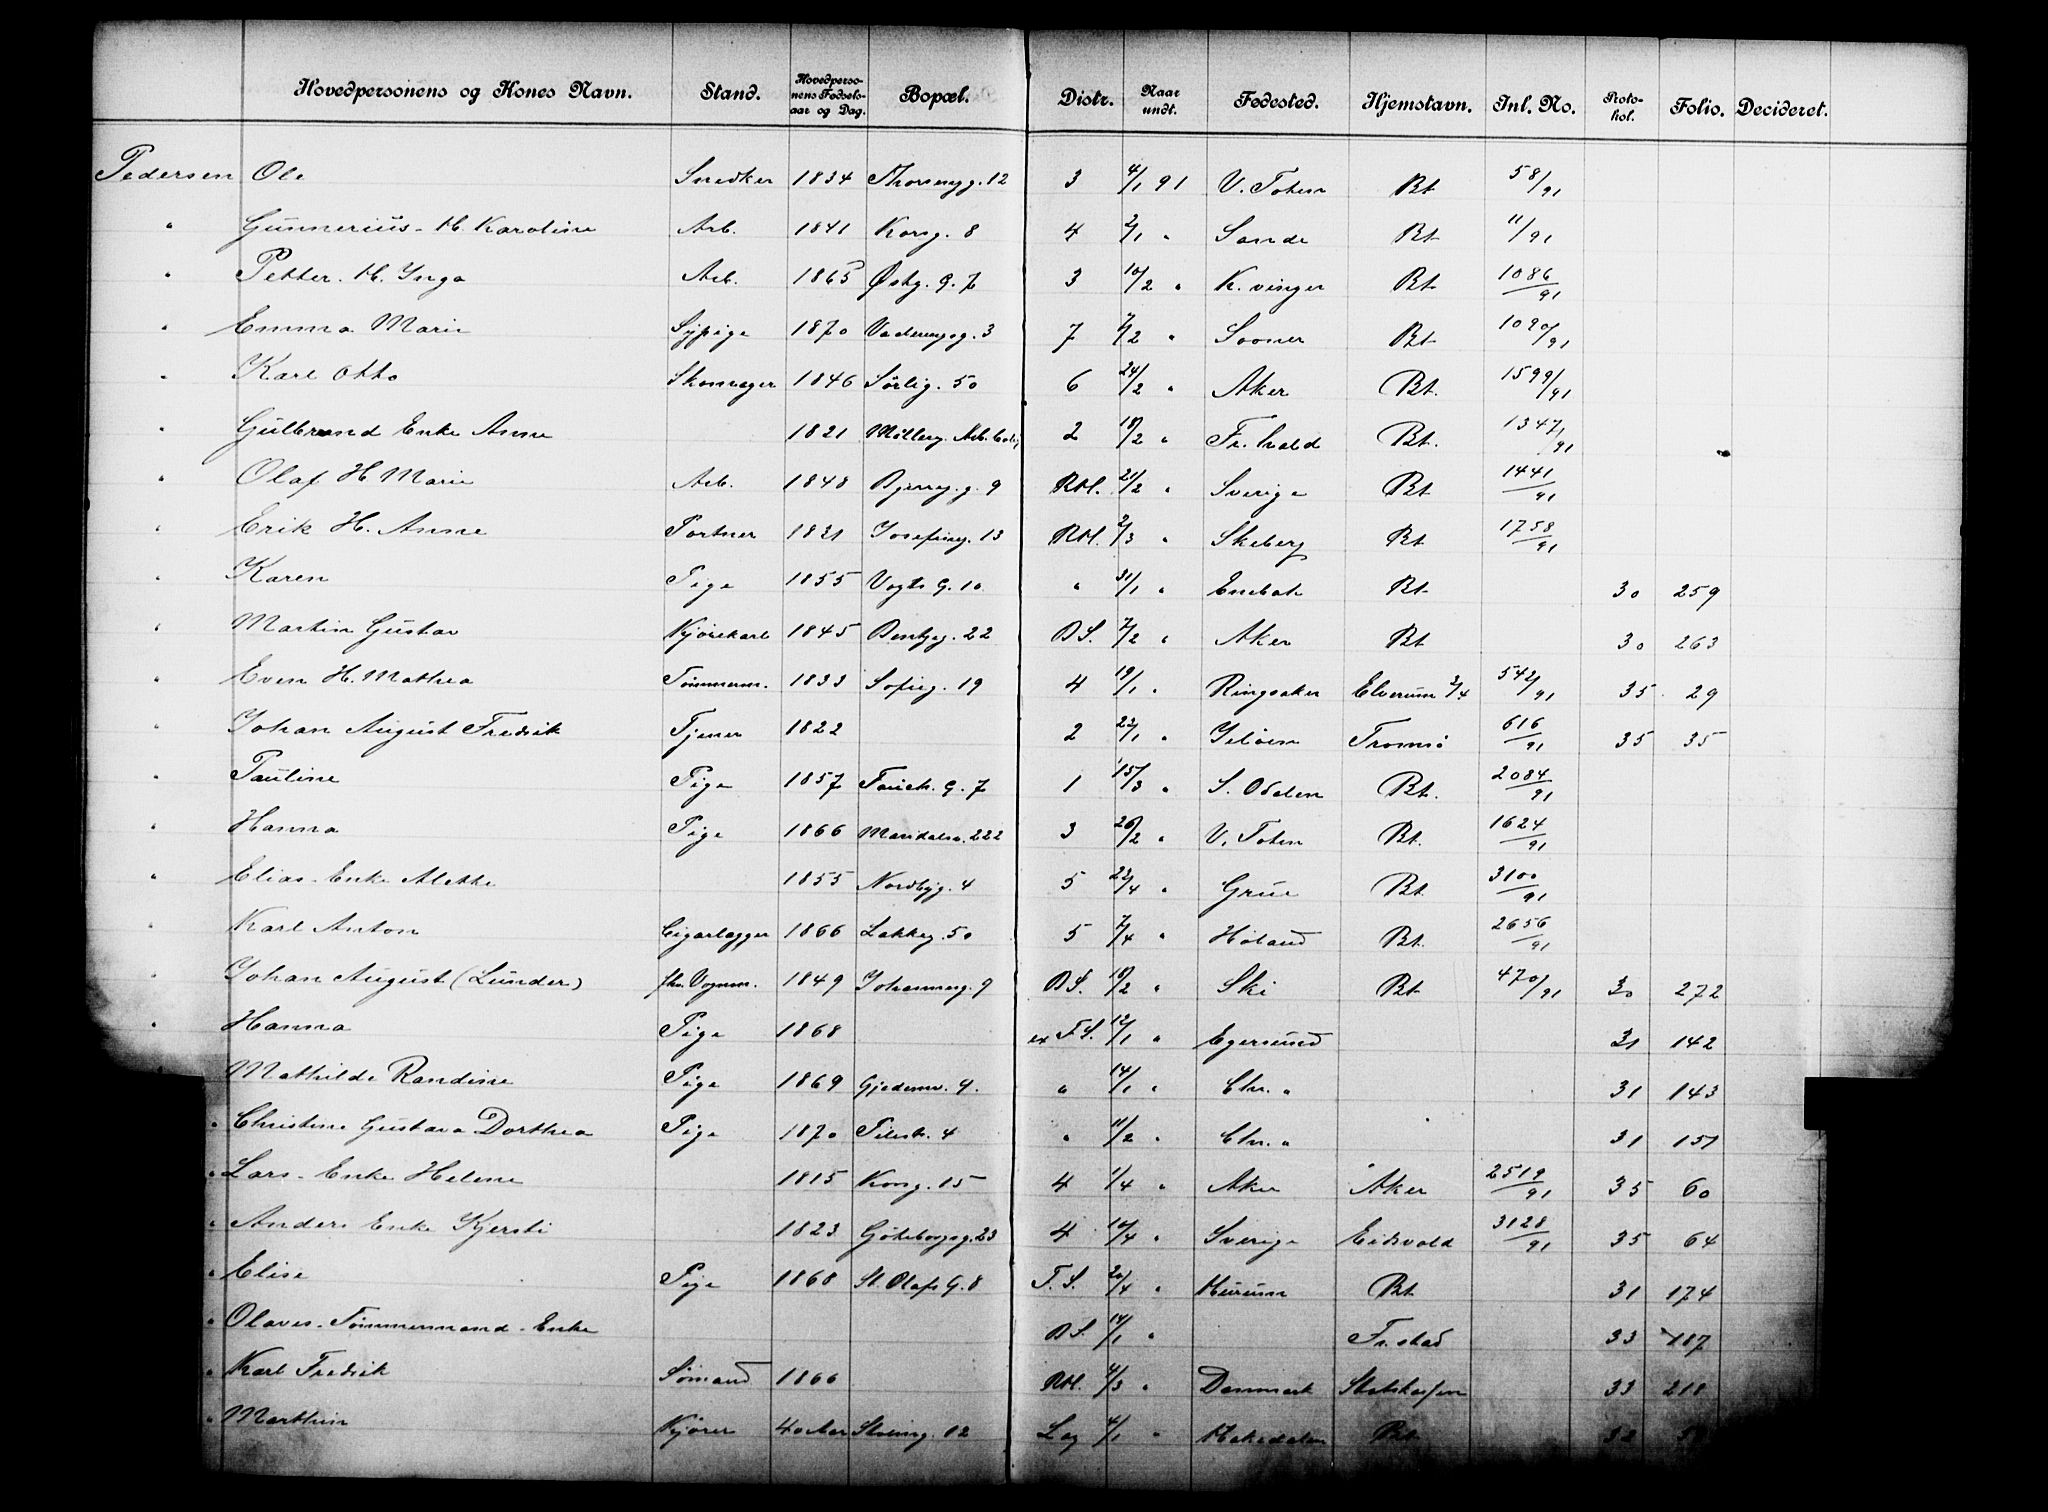 Hovedpersonens og Kones Navn. Stand. Hovedpersonens Fødselsaar og Dag. Bopæl. Distr. Naar undt. Fødested. Hjemstavn. Inl. No. Protokol. Folio. Decideret.
Pedersen Ole Snedker 1834 12 3 4/1 91 V. Toten Bt 58/91
" Gunnerius - H. Karoline Arb. 1841 Korsg. 8 4 2/1 " Sande Bt 11/91
" Petter. H. Inga Arb. 1865 Østg. 9.7 3 10/2 " K. vinger Bt 1086/91
" Emma Marie Sypige 1870 3 7 7/2 " Sooner Bt 1090/91
" Karl Otto Skomager 1846 Sørlig. 50 6 24/2 " Aker Bt. 1599/91
" Gulbrand Enke Anne 1821 Møllerg. Arb. bolig 2 18/2 " Fr. hald Bt. 1347/91
" Olaf H. Marie Arb. 1848 9 RH. 21/2 " Sverige Bt 1441/91
" Erik H. Anne Portner 1831 Josefineg. 13 RH. 2/3 " Skeberg Bt 1758/91
" Karen Pige 1855 Vogts G. 10 " 31/1 " Enebak Bt 30 259
" Martin Gustav Kjørekarl 1845 Bentseg. 22 BS. 7/2 " Aker Bt 30 263
" Even H. Mathea Tømmerm. 1833 Sofieg. 19 4 19/1 " Ringsaker Elverum 2/4 542/91 35 29
" Johan August Fredrik Tjener 1822 2 22/1 " Jeløen Tromsø 616/91 35 35
" Pauline Pige 1857 Fauch. G. 7 1 15/3 " S. Odalen Bt. 2084/91
" Hanna Pige 1866 Maridalsv. 222 3 26/2 " V. Toten Bt. 1624/91
" Elias - Enke Alethe 1855 Nordbyg. 4 5 22/4 " Grue Bt 3100/91
" Karl Anton Cigarlægger 1866 Lakkeg. 50 5 7/4 " Høland Bt. 2656/91
" Johan August (Lunder) fhv. Vognm. 1849 Johannesg. 9 BS. 18/2 " Ski Bt 470/91 30 272
" Hanna Pige 1868 ex FS. 12/1 " Egersund 31 142
Mathilde Randine Pige 1869 Gjedemv. 9. " 14/1 " Chr. " 31 143
" Christine Gustava Dorthea Pige 1870 Pilestr. 4 " 11/2 " Chr. " 31 151
" Lars - Enke Helene 1815 Korsg. 15 4 1/4 " Aker Aker 2519/91 35 60
" Anders Enke Kjersti 1823 Göteborgsg. 23 4 10/4 " Sverige Eidsvold 3128/91 35 64
" Elise Pige 1868 St. Olafs G. 8 T. S. 20/4 " Hurum Bt 31 174
" Olaves - Tømmermand - Enke BS. 14/1 " Fr. stad 33 187
" Karl Fredrik Sømand 1866 RH. 4/3 " Danmark 33 218
" Marthin Kjører 40 Aar 12 Lag 4/1 " Hakedalen Bt 32